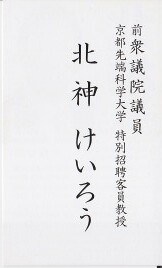 前衆議院議員
京都先端科学大学 特別招聘客員教授
北神 けいろう